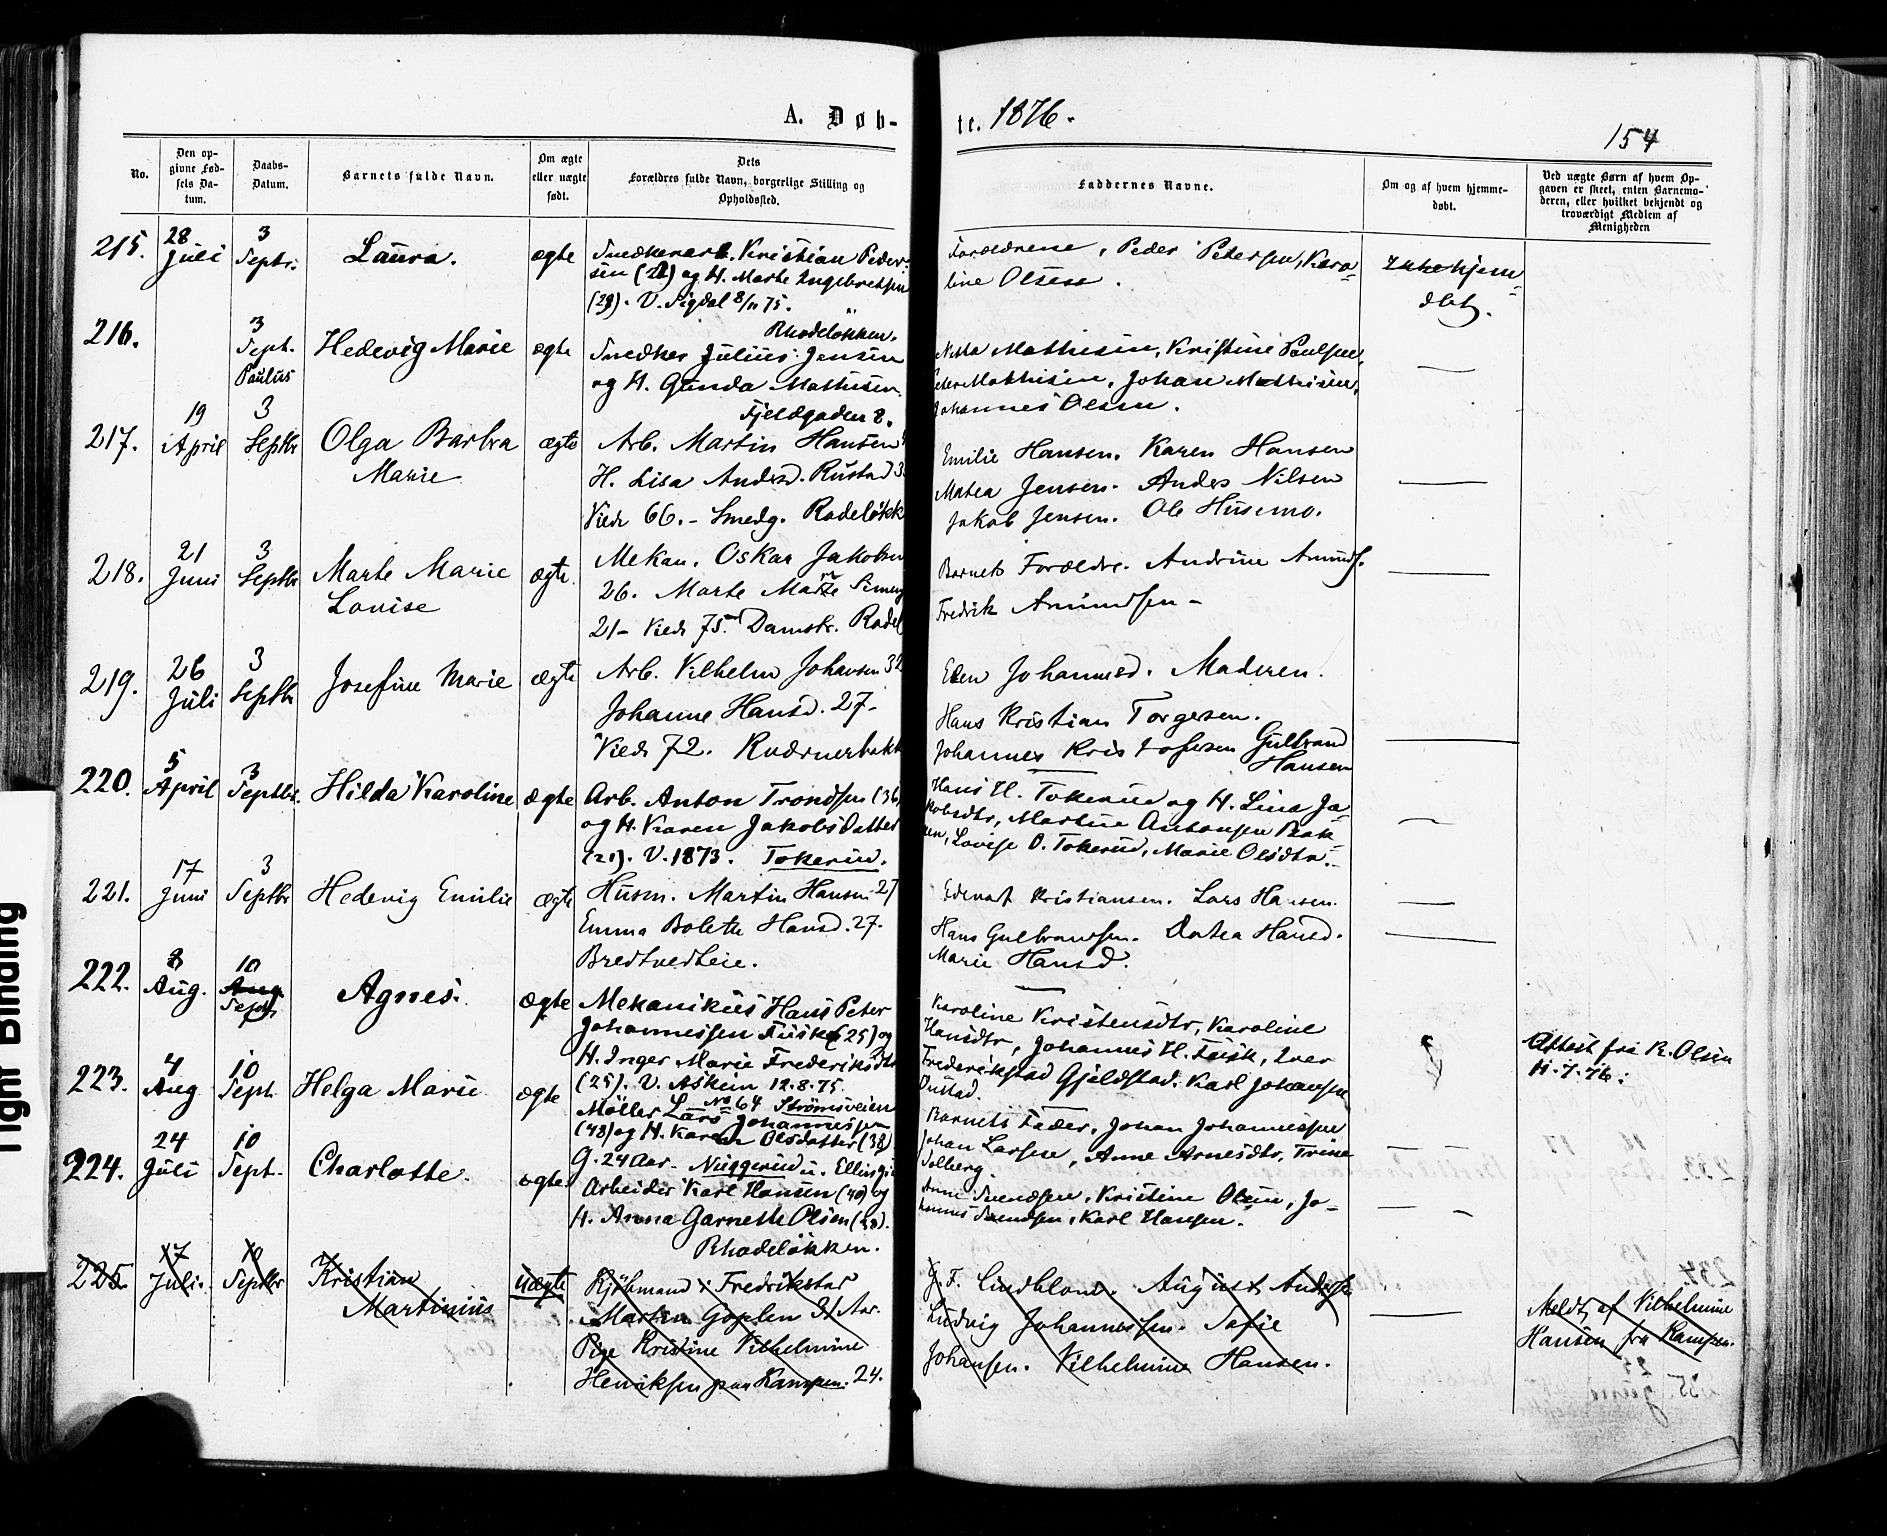 A. Døb-
te. 1876.
154
No.
Den op-
givne Fød-
sels Da-
tum.
Daabs-
Datum.
Barnets fulde Navn.
Om ægte
eller uægte
født.
Dets
Forældres fulde Navn, borgerlige Stilling og
Opholdssted.
Faddernes Navne.
Om og af hvem hjemme-
døbt.
Ved uægte Børn af hvem Op-
gaven er skeet, enten Barnemo-
deren, eller hvilket bekjendt og
troværdigt Medlem af
Menigheden
215.
28
Juli
3
Septr.
Laura.
ægte
Snedkerarb. Kristian Peder-
sen og H. Marte Ingebretsen
(29). V. Sigdal 8/11 75.
Forældrene, Peder Petersen, Karo-
line Olsen.
Ikke hjem-
dbt.
216.
3
Sept.
Paulus
Hedevig Marie
ægte
Rhodeløkken.
Snedker Julius Jensen
og H. Gunda Mathisen.
Mathisen, Kristine Paulsen,
Peter Mathisen, Johan Mathisen,
Johannes Olsen.
217.
19
April
3
Septbr
Olga Barbra
Marie
ægte
Fjeldgaden 8.
Arb. Martin Hansen
H. Lisa Andersd. Rustad 3
Viede 66. - Smedg. Rodeløkk
Emilie Hansen. Karen Hansen
Matea Jensen. Anders Nilsen
Jakob Jensen. Ole Husemo.
218.
21
Juni
3
Septbr
Marte Marie
Lovise
ægte.
Mekan. Oskar Jakobsen
26. Marte Marie
21 - Viede 75. Damstr. Rodel
Barnets Forældre. Andrine Amunds.
Fredrik Amundsen -
219.
26
Juli
3
Septbr
Josefine Marie
ægte
Arb. Vilhelm Johansen 32
Johanne Hansd. 27 -
Viede 72. Kværnerbakk
Elen Johannesd. Maderen.
Hans Kristian Torgersen.
Johannes Kristofersen Gulbrand
Hansen
220.
5
April
3
Septbr.
Hilda Karoline
ægte
Arb. Anton Trondsen (36)
og H. Karen Jakobsdatter
(21). V. 1873. Tokerud.
Hans H. Tokerud og H. Lina Ja-
kobsdtr, Martin Antonsen Bak-
ken, Lovise O. Tokerud, Marie Olsdtr.
221.
17
Juni
3
Septbr
Hedevig Emilie
ægte
Husm. Martin Hansen 27
Emma Bolette Hansd. 27.
Bredtvedteie.
Edevart Kristiansen. Lars Hansen.
Hans Gulbrandsen. Dotea Hansd.
Marie Hansd.
222.
8
Aug.
10
Aug
Sept.
Agnes.
ægte
Mekanikus Hans Peter
Johannessen Fusk (25) og
H. Inger Marie Frederiksdtr
(25). V. Askim 12.8.75.
No 64 Strømsveien
Karoline Kristensdtr, Karoline
Hansdtr, Johannes H. Fusk, Iver
Frederikstad Gjeldstad. Karl Johansen
Attest fra R. Olsen
11.7.76.
223.
4
Aug
10
Sept.
Helga Marie
ægte
Møller Lars Johannessen
(48) og H. Karen Olsdatter (38)
G. 24 Aar - Nuggerud u. Ellingsr
Barnets Fader, Johan Johannessen
Johan Larsen, Anne Arnesdtr, Trine
Solberg
224.
24
Juli
10
Sept.
Charlotte.
ægte
Arbeider Karl Hansen (40) og
H. Anna Garnette Olsen (28).
Rhodeløkken.
Anne Svendsen, Kristine Olsen, Jo-
hannes Svendsen, Karl Hansen.
225.
17
Juli.
10
Septbr
Kristian
Martinius
uægte
Kjøbmand i Fredrikstad
Martin Goplen 31 Aar.
Pige Kristine Vilhelmine
Henriksen paa Kampen. 24.
F. Lindblom. August Andersen
Ludvig Johannessen. Sofie
Johansen. Vilhelmine Hansen.
Meldt af Vilhelmine
Hansen fra Kampen.
Tight Binding